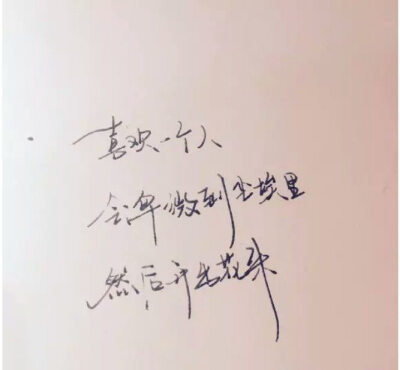 喜欢一个人
会卑微到尘埃里
然后开出花来